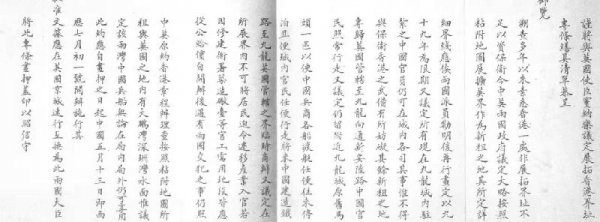 謹將與英國使臣竇納樂議定展拓香港界址
專條繕具清單恭呈
御覽
溯查多年以來素悉香港一處非展拓界址不
足以資保衛今中英兩國政府議定大略按照
粘附地圖展擴英界作為新租之地其所定詳
細界線應俟兩國派員勘明後再行畫定以九
十九年為限期又議定所有現在九龍城內駐
紮之中國官員仍可在城內各司其事惟不得
與保衛香港之武備有所妨礙其餘新租之地
專歸英國管轄至九龍向通新安陸路中國官
民照常行走又議定仍留附近九龍城原舊馬
頭一區以便中國兵商各船渡艇任便往來停
泊且便城內官民任便行走將來中國建造鐵
路至九龍英國管轄之界臨時商辦又議定在
所展界內不可將居民迫令遷移產業入官若
因修建衙署築造礮臺等官工需用地段皆應
從公給價自開辦後遇有兩國交犯之事仍照
中英原約香港章程辦理查按照粘附地圖所
租與英國之地內有大鵬灣深圳灣水面惟議
定該兩灣中國兵船無論在局內局外仍可享用
此約應自畫押之日起中國五月十三日即西
歷七月初一號開辦施行其
批准文據應在英國京城速行互換為此兩國大臣
將此專條畫押蓋印以昭信守